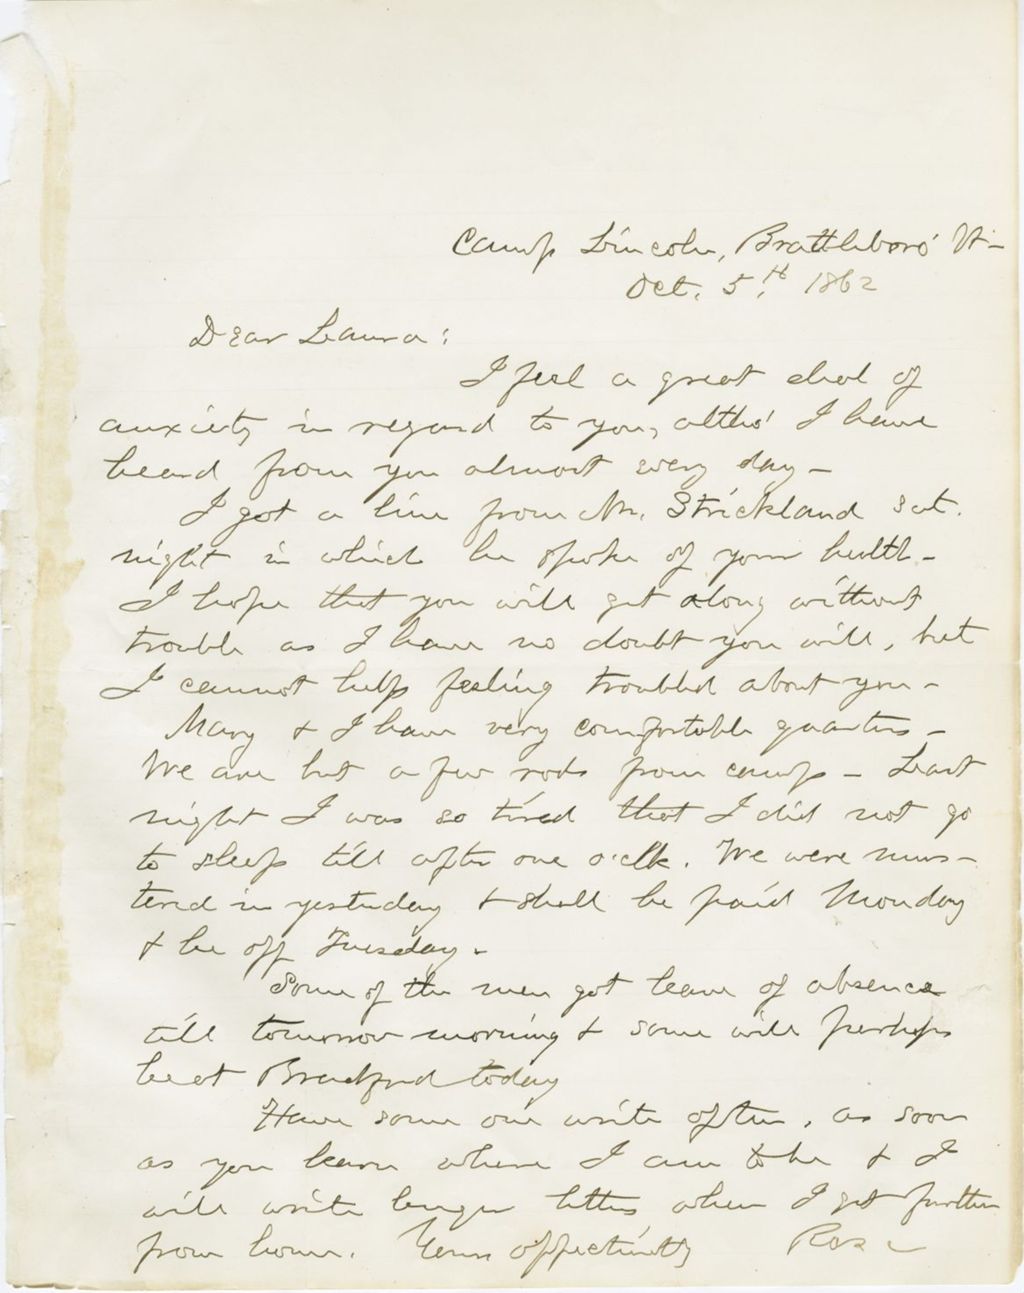 Camp Lincoln, Brattleboro' Vt -
Oct. 5th 1862
Dear Laura:
I feel a great deal of
anxiety in regard to you, altho' I have
heard from you almost every day -
I got a line from Mr. Strickland Sat.
night in which he spoke of your health -
I hope that you will get along without
trouble as I have no doubt you will, but
I cannot help feeling troubled about you -
Mary & I have very comfortable quarters -
We are but a few rods from camp - Last
night I was so tired that I did not go
to sleep till after one o'clk. We were mus-
tered in yesterday & shall be paid Monday
& be off Tuesday -
Some of the men got leave of absence
till tomorrow morning & some will perhaps
be at Bradford today
Have some one write often, as soon
as you learn where I am to be & I
will write longer letters when I get further
from home. Yours affectionately